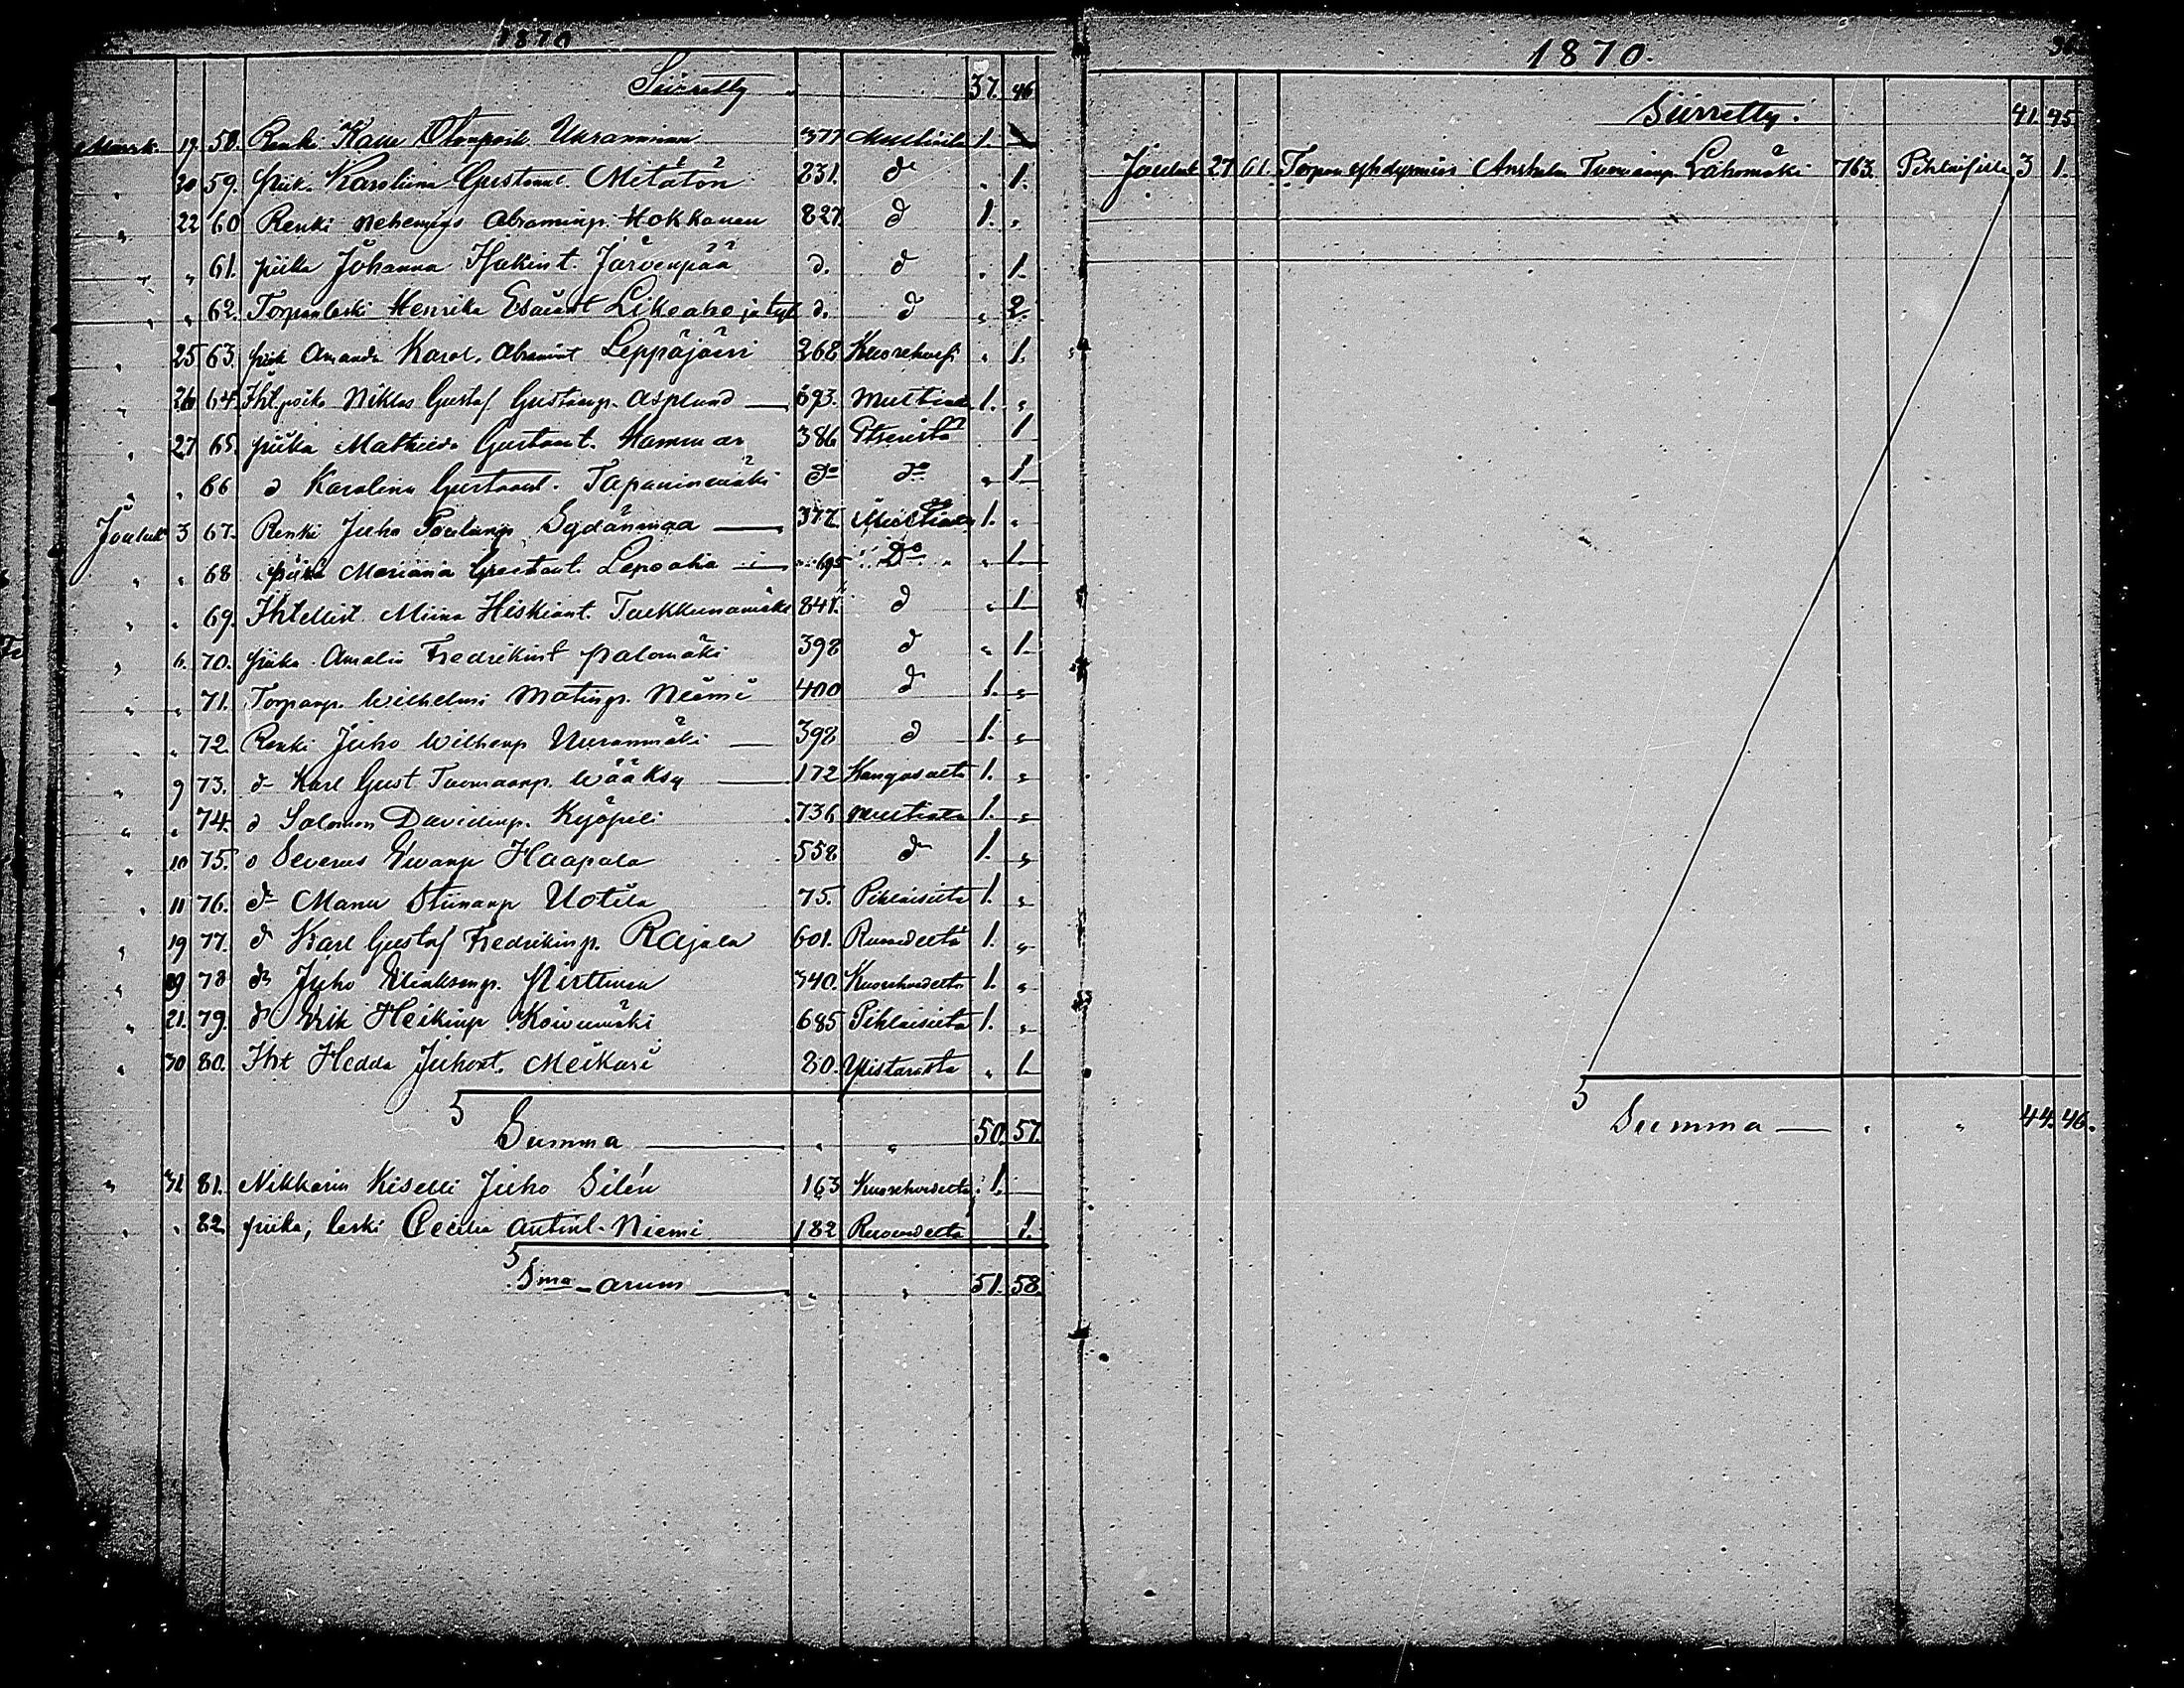 1870
Siirretty 37. 46
Marrk. 19 58. Renki Kalle 377 1.
20 59. piik. Karoliina Gustaavt. Mitätön 231. d 1.
" 22 60 Renki Nehemias Abraminp. Hokkanen 827. d 1. "
" " 61. piika Johanna Isakint. Järvenpää d. d " 1.
" " 62. Torpanleski Henrika Esaiant Likoaho ja tyt d. d " 2.
" 25 63. piik Amanda Karol. Abramint Leppäjärvi 268 " 1.
" 26 64. Iht. poika Niklas Gustaf Gustaavp. Asplund 693. Multiale 1. "
" 27 65. piika Mathilda Gustaavt. Hammar 386 1
" " 66 d Karolina Gustaavt. Tapaninmäki do do " 1
Jouluk 3 67. Renki Juho Sydänmaa 377. 1. "
" " 68 piika Mariana Gustavt. Lepoaho 695 Do " 1
" " 69. Ihtellist. Miina Hiskiant. Tuekkunamäki 847. d " 1
" 6. 70. piika Amalia Fredrikint Palomäki 398 d " 1.
" " 71. Torpanp. Wilhelmi Matinp. Niemi 400 d 1. "
" " 72. Renki Juho Wilhenp Uuranmäki 398 d 1. "
" 9 73. d Karl Gust Tuomaanp. Wääksy 172 Kangasalta 1. "
" " 74. d Salomon Davidinp. Kyöpeli 736 Multiala 1. "
" 10 75. d Severus Haapala 558 d 1. "
" 11 76. d Manu Stiinanp Uotila 75. Pihlaisista 1. "
" 19 77. d Karl Gustaf Fredrikinp. Rajala 601. Ruovedelta 1. "
" 19 78 d Juho Pirttinen 340. Kuorehvedelta 1. "
" 21. 79. d Erik Heikinp Koivumäki 685 Pihlaisista 1. "
" 30 80. Iht Hedda Juhont. Meikari 80. Ylistarosta " 1
Summa " " 50. 57.
" 31 81. Nikkarin Kiselli Juho Silén 163 Kuorehvedelta 1.
" " 82. piika, leski Cecilia Antint. Niemi 182 Ruovedelta 1.
Sma-arum " " 51. 58.
1870.
Siirretty. 41. 45
Jouluk 27 61. Tuomaanp. Lahomäki 763. 3 1.
Summa " " 44. 46.